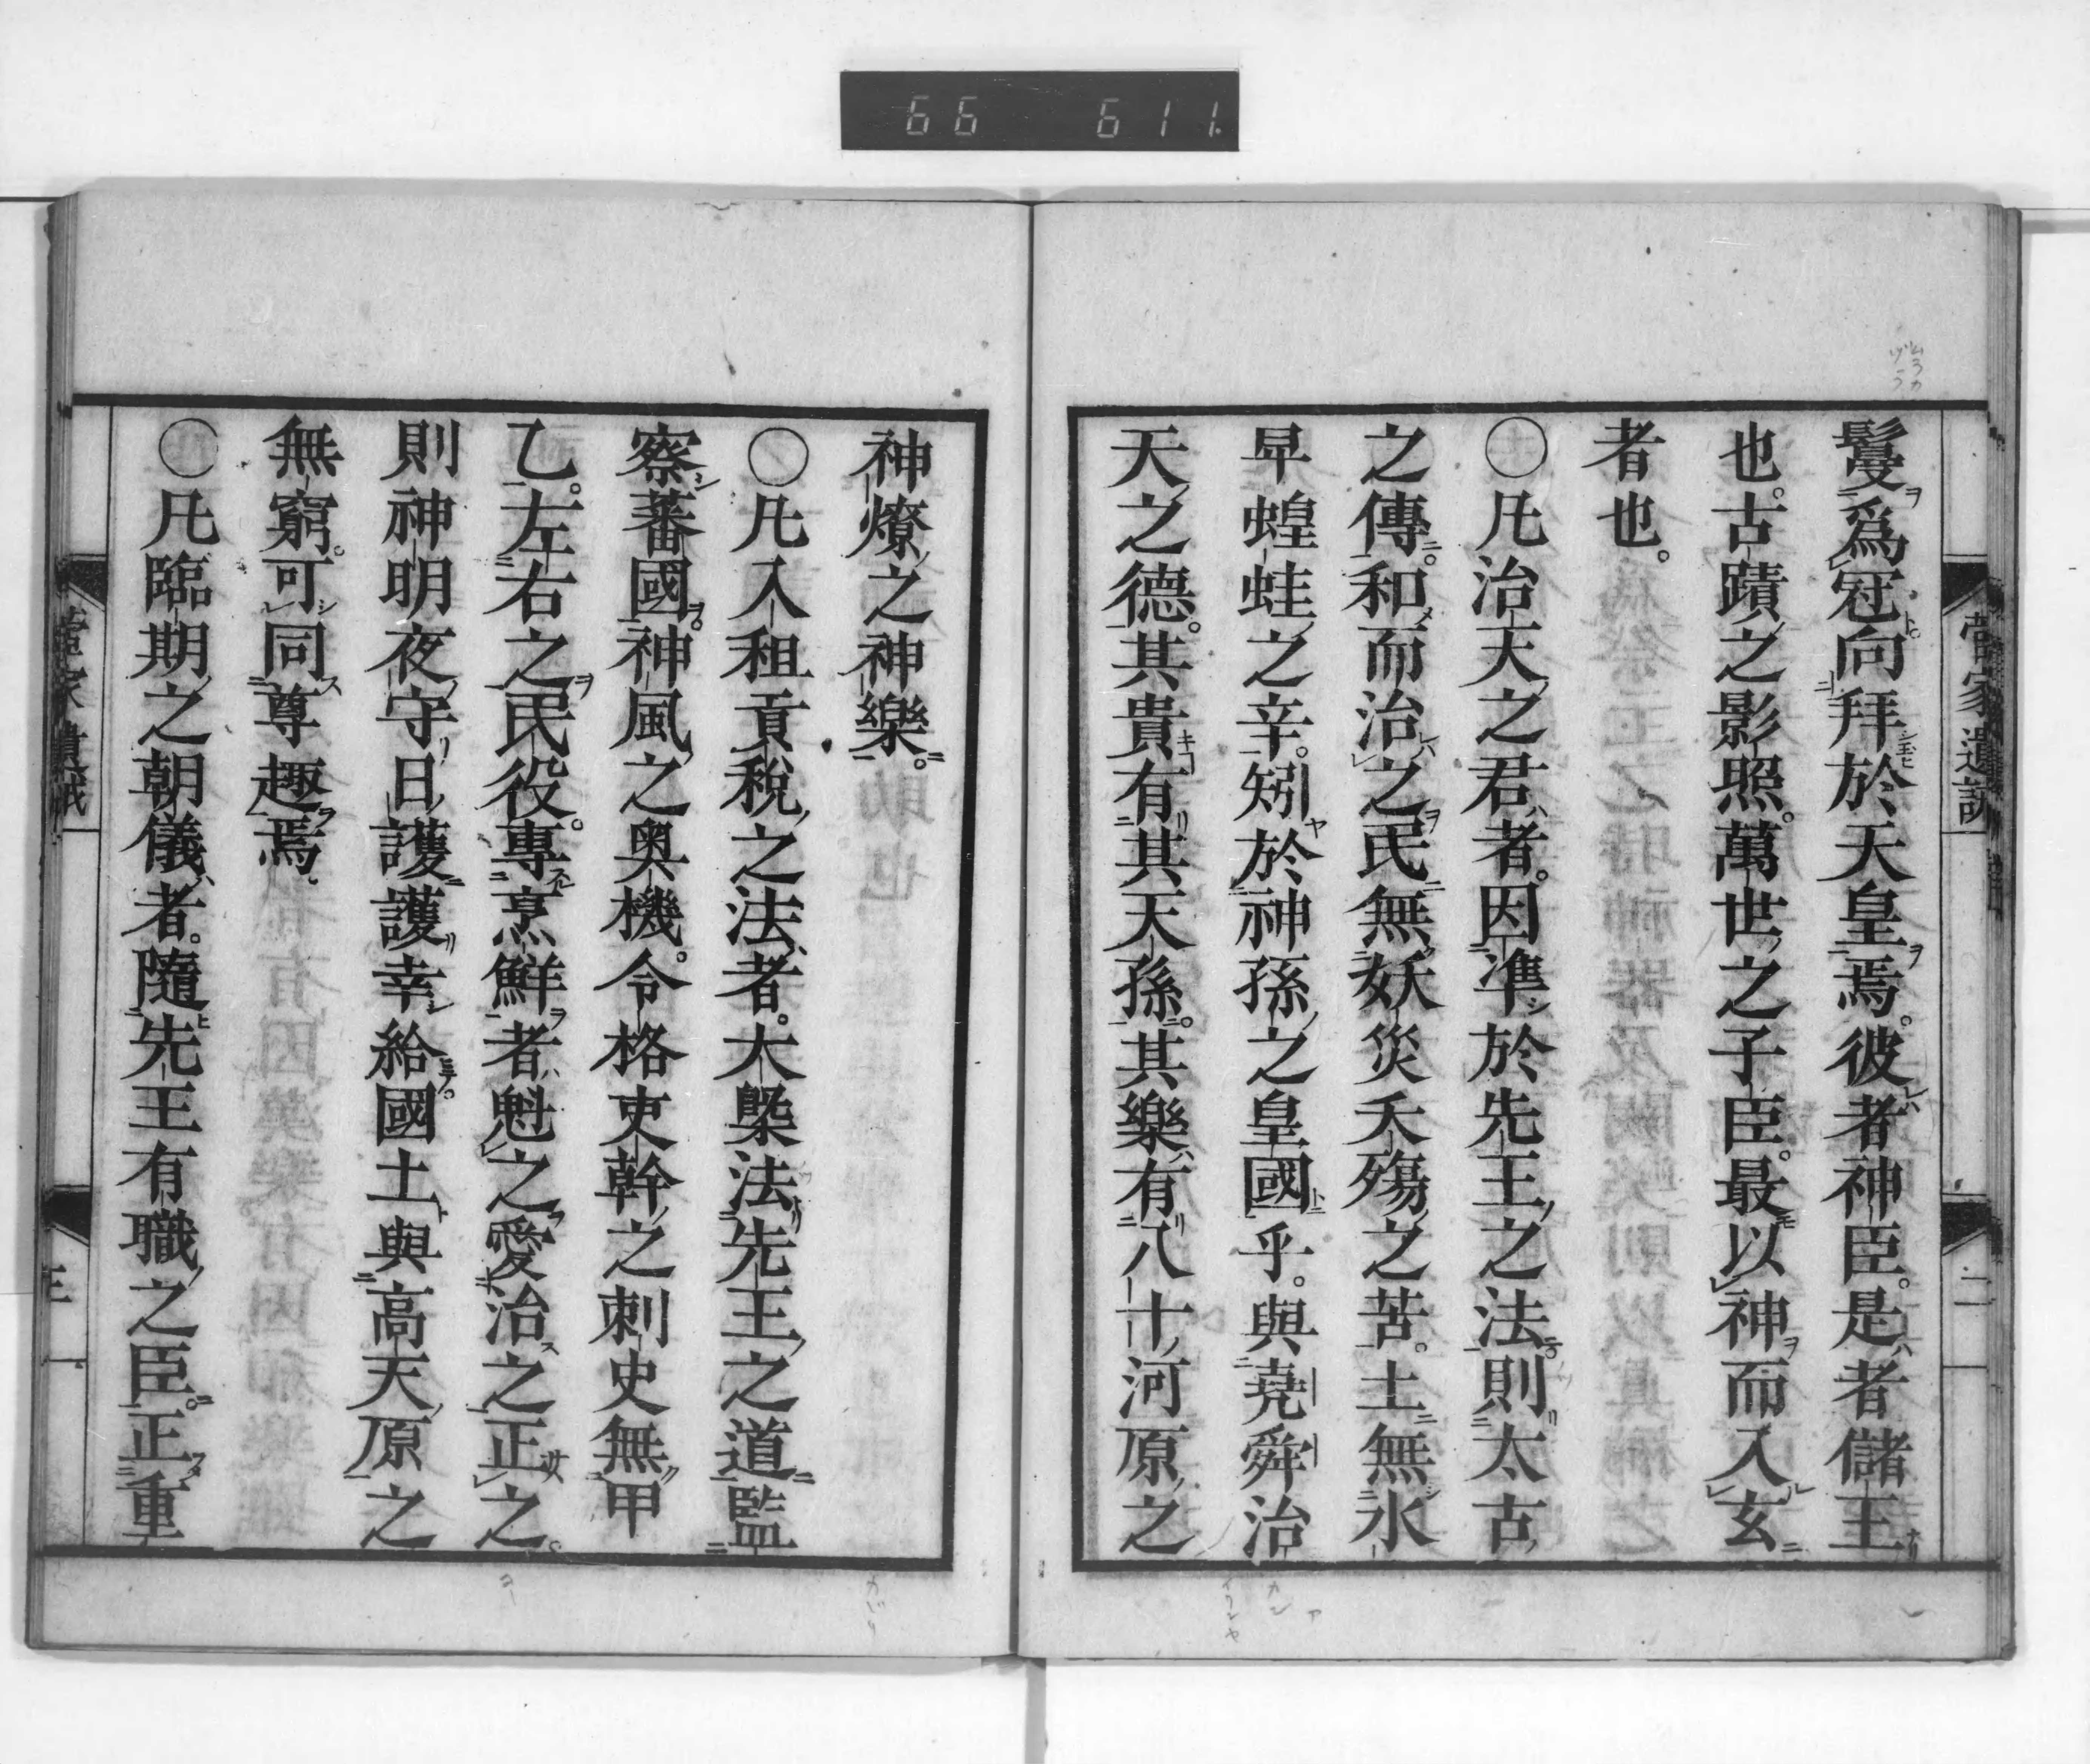 66 611.
菅家遺誡
二
鬘爲冠向拜於天皇焉。彼者神臣。是者儲王
也。古蹟之影照。萬世之子臣。最以神而入玄
者也。
〇凡治天之君者。因準於先王之法。則太古
之傳。和而治之民無妖災夭殤之苦。土無水
旱蝗蛙之辛。矧於神孫之皇國乎。與堯舜治
天之德。其貴有其天孫。其樂有八十河原之
神燎之神樂。
〇凡入租貢稅之法者。大槩法先王之道監
察蕃國。神風之奧機。令格吏幹之刺史無甲
乙。左右之民役。專烹鮮者魁之愛治之正之。
則神明夜守日護護幸給。國土與高天原之
無窮。可同尊趣焉。
〇凡臨期之朝儀者。隨先王有職之臣。正重
菅家遺誡
三